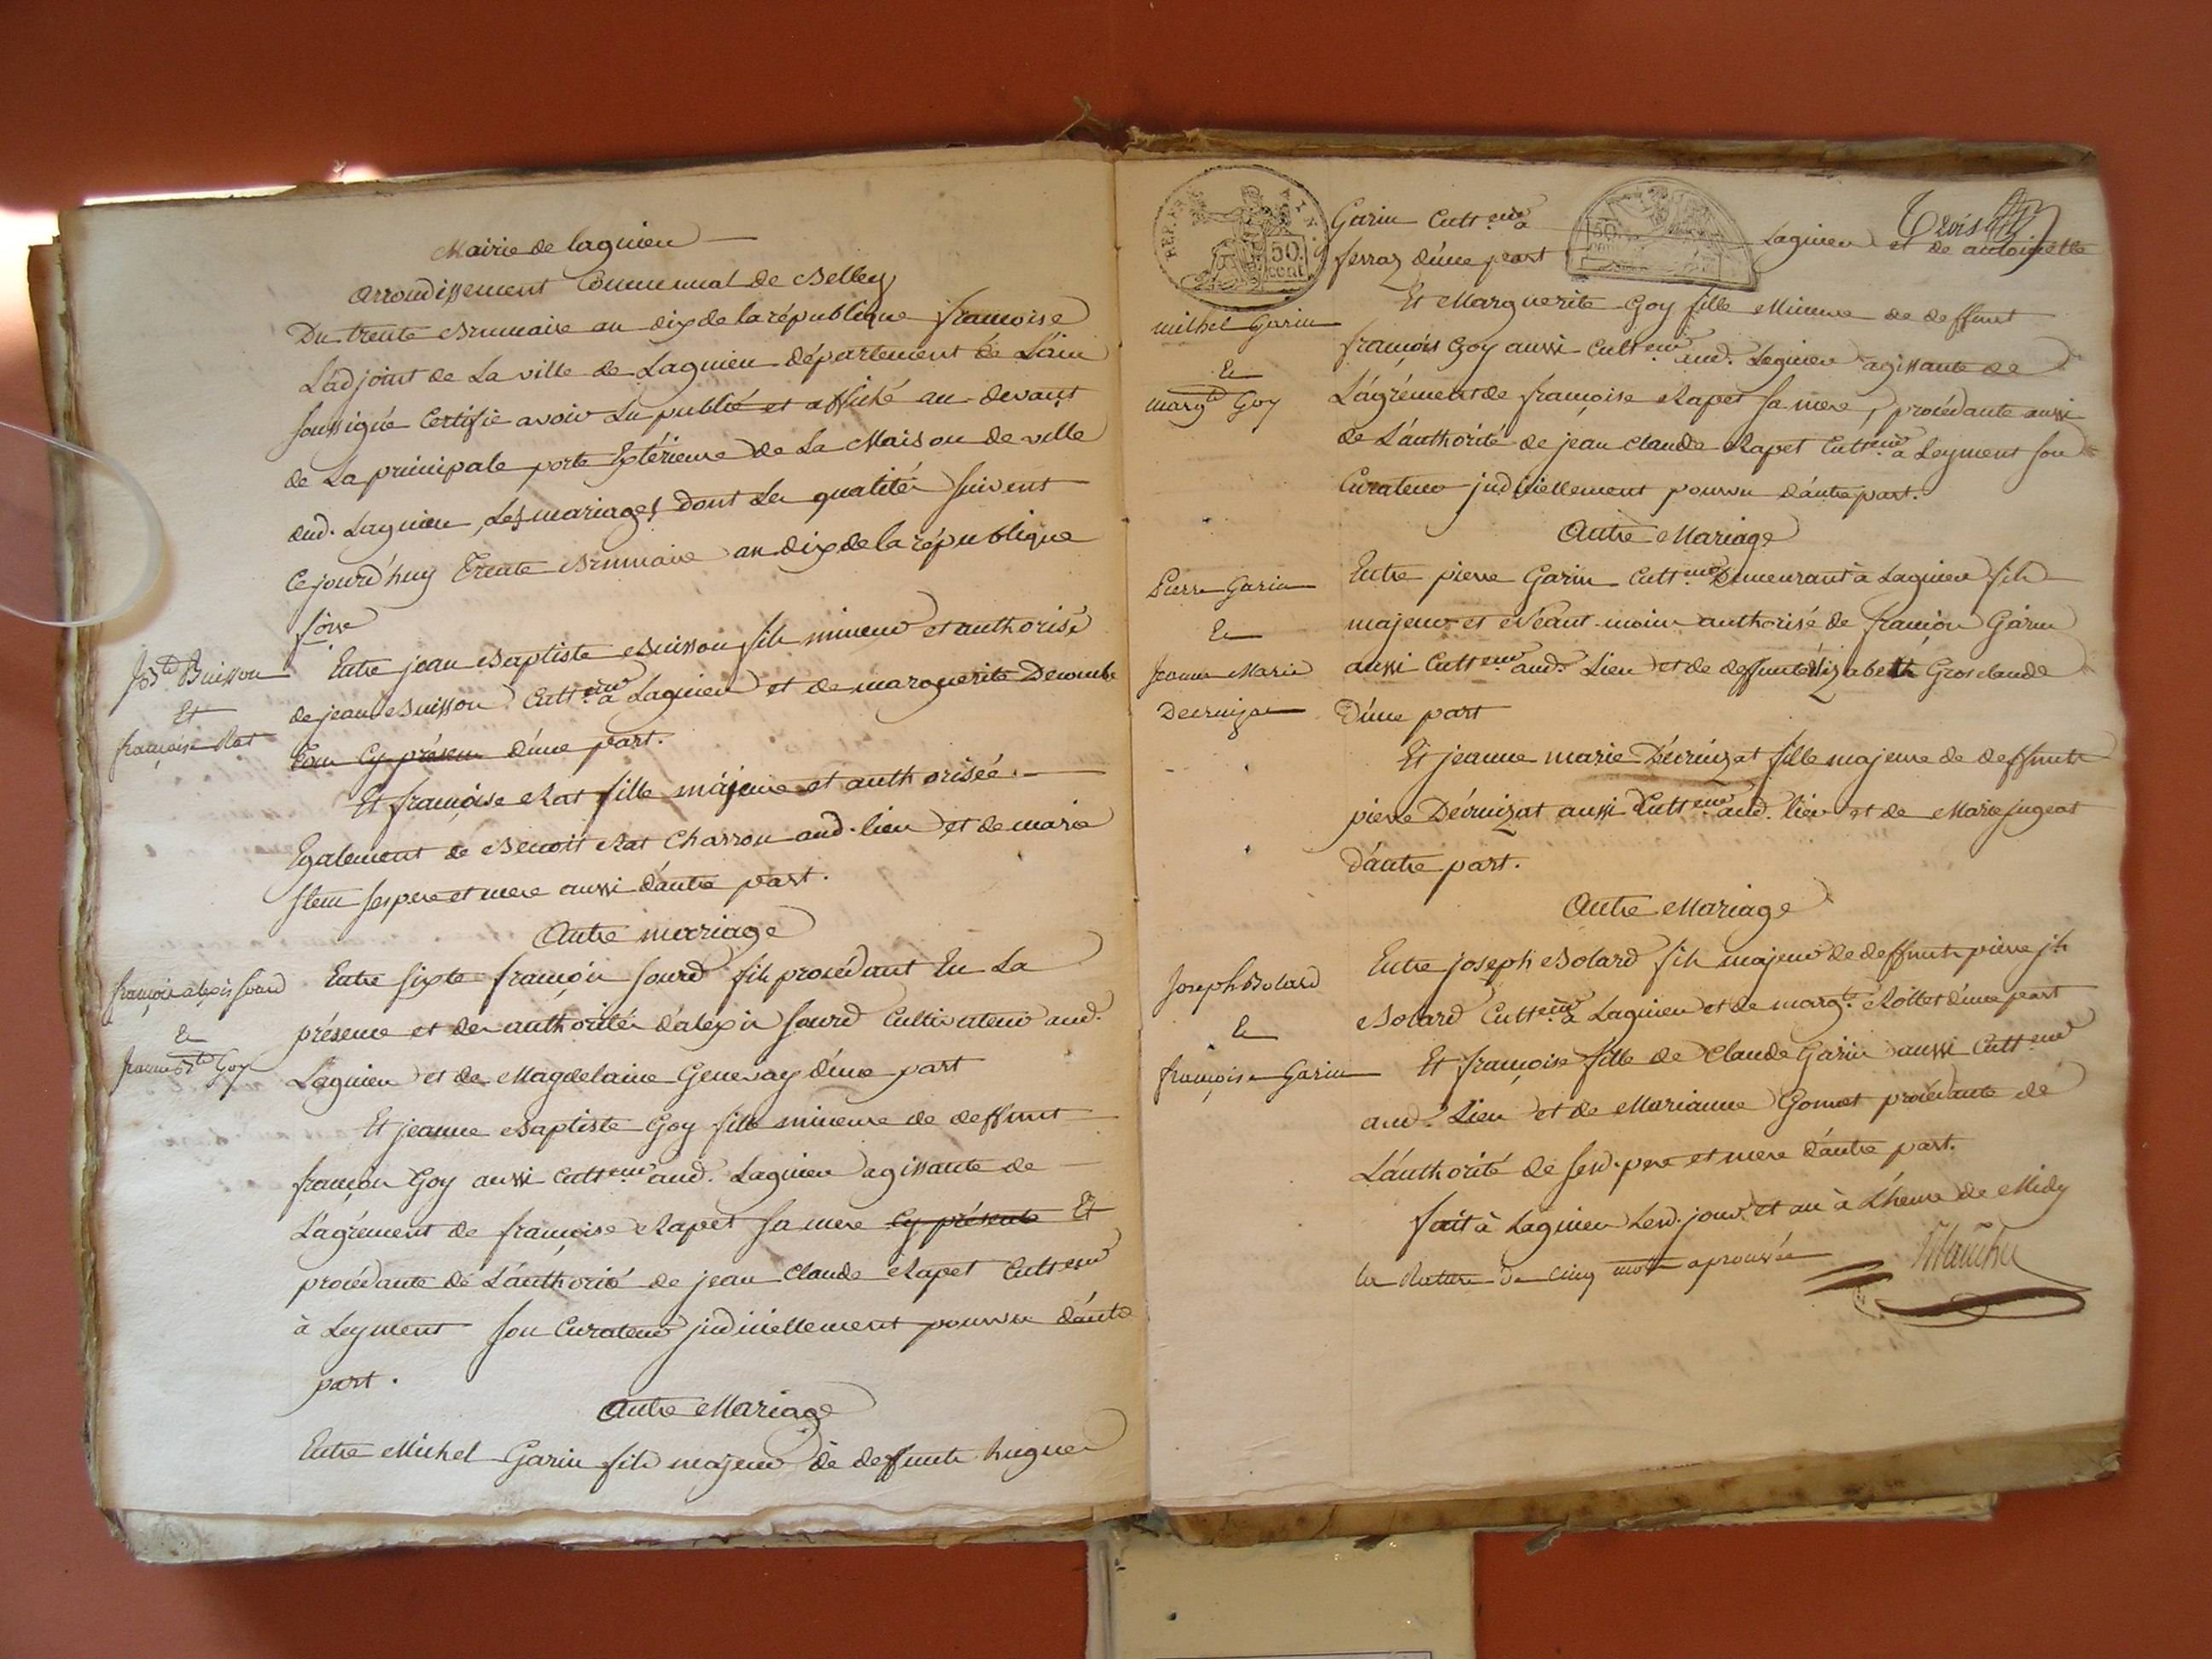 Mairie de lagnieu
arrondissement Communal de Belley
Du trente Brumaire an dix de la république françoise
L'adjoint de La ville de Lagnieu département de L'ain
soussigné Certifie avoir Lu publié et affiché au devant
de La principale porte Extérieure de La Maison de ville
dud. Lagnieu, Les mariages dont Les qualités suivent
Ce jourd'huy Trente Brumaire an dix de la république
foise
Jn Bte Buisson
Et
françoise Rat
Entre jean Baptiste Buisson fils mineur et authorisé
de jean Buisson Culteur à Lagnieu et de marguerite Decombe
Tous Cy présens d'une part.
Et françoise Rat fille majeure et authorisée
Egalement de Benoit Rat Charron aud. lieu et de marie
ses pere et mere aussi d'autre part.
Autre mariage
françois alexis Sourd
Et
Jeanne Bte Goy
Entre Sixte françois Sourd fils procédant En La
présence et des authorités d'alexis Sourd Cultivateur aud.
Lagnieu et de Magdelaine Genevay d'une part
Et jeanne Baptiste Goy fille mineure de deffunt
françois Goy aussi Cultteur aud. Lagnieu agissante de
L'agrément de françoise Rapet sa mere Cy présente Et
procédante de L'authorité de jean Claude Rapet Cultteur
à Leyment son Curateur judiciellement pourvu d'autre
part.
Autre Mariage
Entre Michel Garin fils majeur de deffunts hugues
REP. FRA.
50 cent.
50
Trois
Garin Cultteur à Lagnieu et de antoinette
ferraz d'une part
michel Garin
Et
margte Goy
Et Marguerite Goy fille Mineure de deffunt
françois Goy aussi Cultteur aud. Lagnieu agissante de
L'agrément de françoise Rapet sa mere, procédante aussi
de L'authorité de jean Claude Rapet Cultteur à Leyment son
Curateur judiciellement pourvu d'autre part.
Autre Mariage
Pierre Garin
Et
Jeanne Marie
Entre pierre Garin Cultteur Demeurant à Lagnieu fils
majeur et Néant-moins authorisé de françois Garin
aussi Cultteur aud. Lieu et de deffunte Elizabeth Grosclaude
D'une part
Et jeanne marie fille majeure de deffunts
pierre aussi Cultteur aud. lieu et de Marie Jugeat
D'autre part.
Autre Mariage
Joseph Bolard
Et
françoise Garin
Entre joseph Bolard fils majeur de deffunts pierre jh
Bolard Cultteur à Lagnieu et de margte Rollet d'une part
Et françoise fille de Claude Garin aussi Cultteur
aud. Lieu et de Marianne Gomet procédante de
L'authorité de sesd. pere et mere d'autre part.
fait à Lagnieu Lesd. jour et an à L'heure de Midy
La Rature de Cinq mots aprouvée